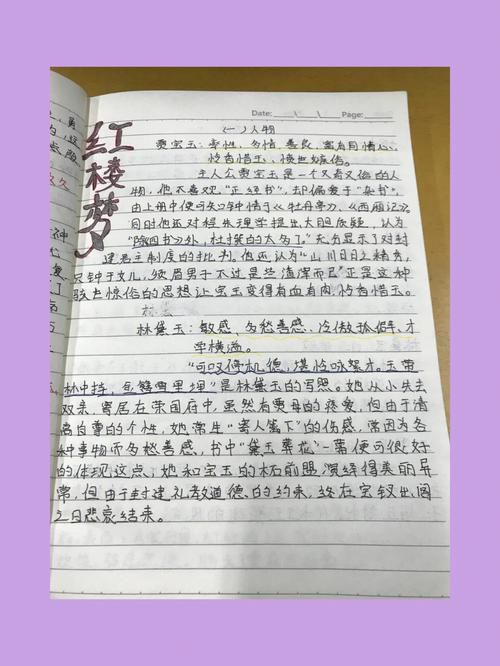 Date: \ \ Page:
红楼梦
(一)人物
贾宝玉：率性、多情、善良、富有同情心、
怜香惜玉、愤世嫉俗。
主人公贾宝玉是一个又奇又俗的人
物，他不喜观"正经书"，却偏爱于"杂书"。
由上册中便可知钟情于《牡丹亭》、《西厢记》。
同时他还对程朱理学提出大胆质疑，认为
"除四书外，杜撰的太多了。"充分显示了对封
建君主制度的批判。他还认为"山川日月之精秀，
只钟于女儿，须眉男子不过是些渣滓而已"正是这种
惊俗的思想让宝玉变得有血有肉，怜香惜玉。
林黛玉：敏感、多愁善感、冷傲孤僻、才
学横溢。
"可叹停机德，堪怜咏絮才。玉带
林中挂，金簪雪里埋"是林黛玉的写照。她从小失去
双亲，寄居在荣国府中，虽然有贾母的疼爱，但由于清
高自尊的个性，她常生"寄人篱下"的伤感，常因为各
种事物而多愁善感，书中"黛玉葬花"一幕便可很好
的体现这点，她和宝玉的木石前盟演绎得美丽异
常，但由于封建礼教道德、的约束，终在宝钗出阁
之日悲哀结束。